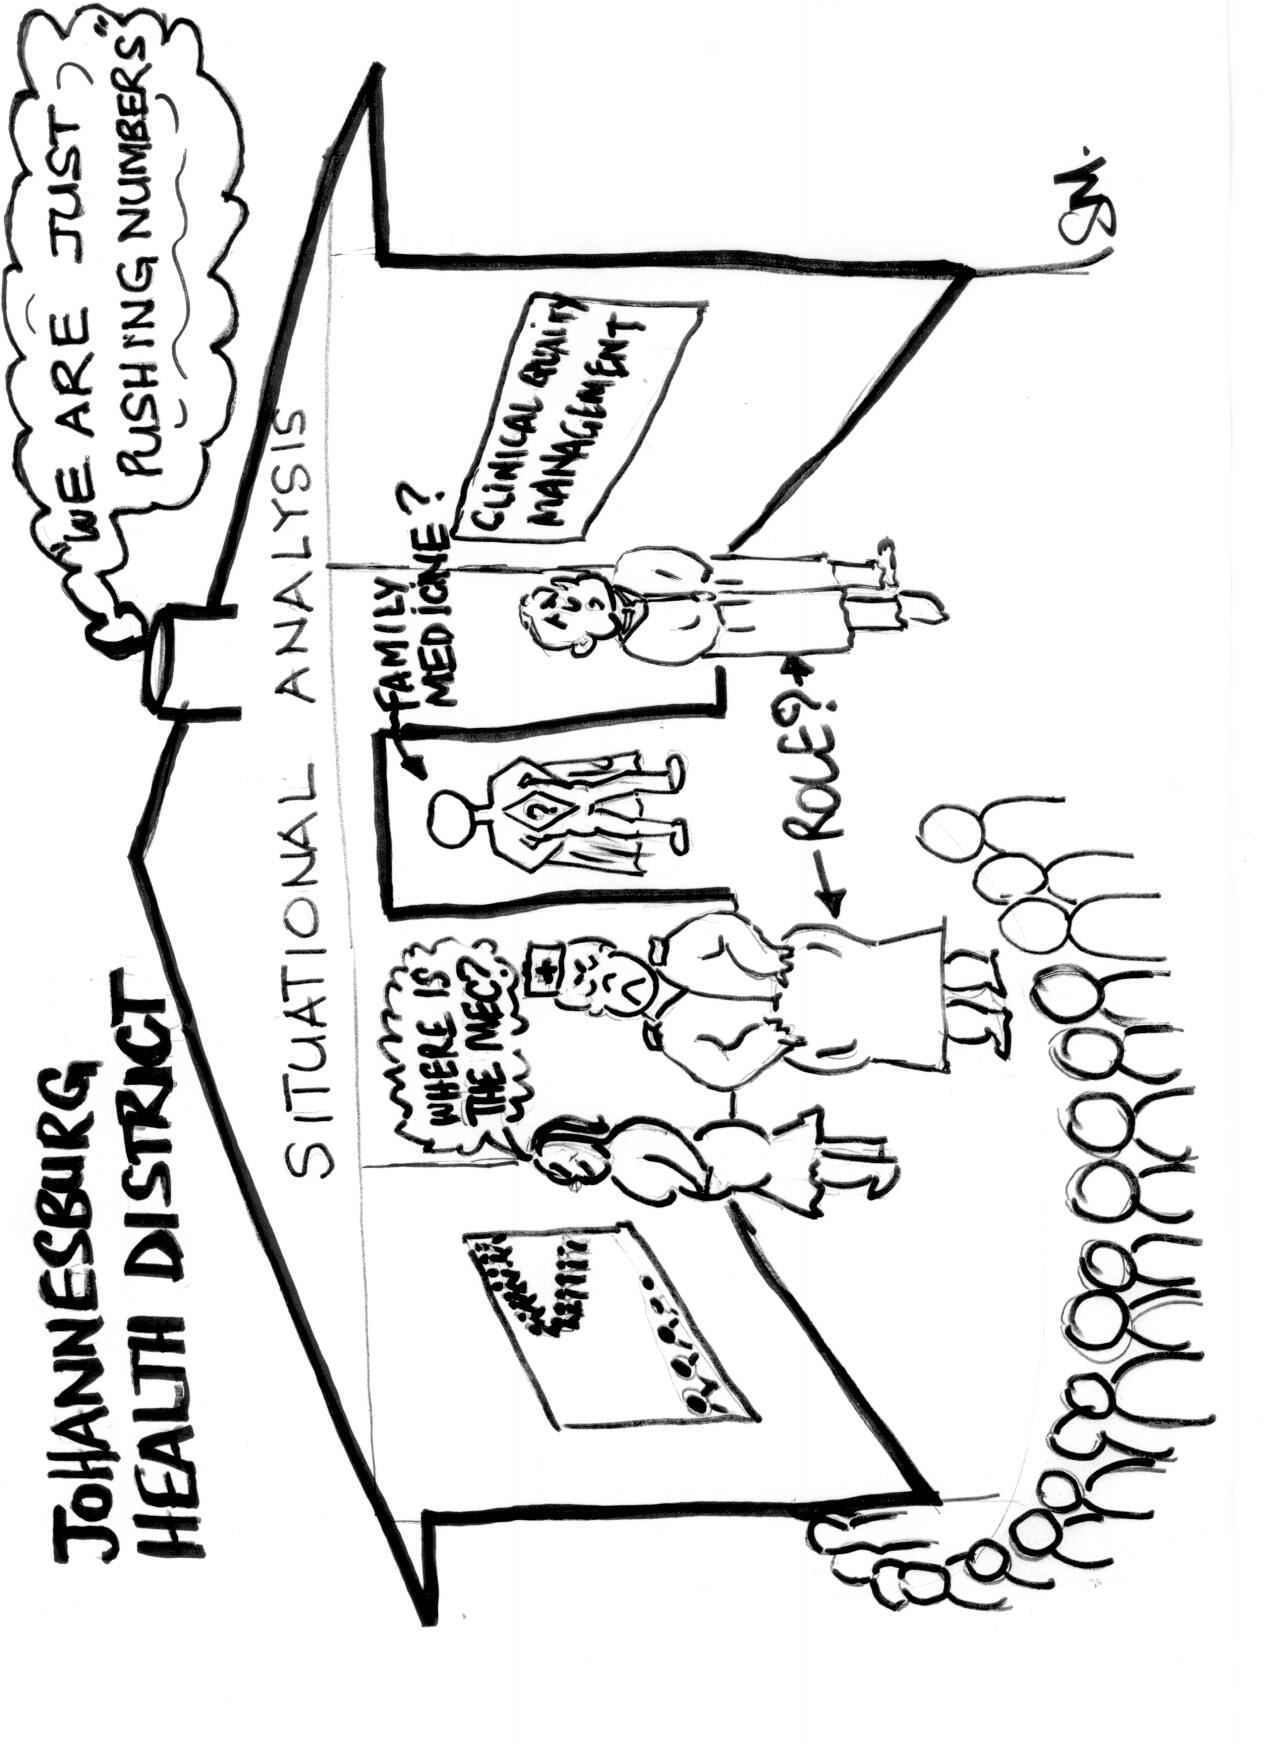 JOHANNESBURG
HEALTH DISTRICT
"WE ARE JUST
PUSHING NUMBERS"
SITUATIONAL ANALYSIS
WHERE IS
THE MEC?
FAMILY
MEDICINE?
?
CLINICAL QUALITY
MANAGEMENT
ROLE?
SM.